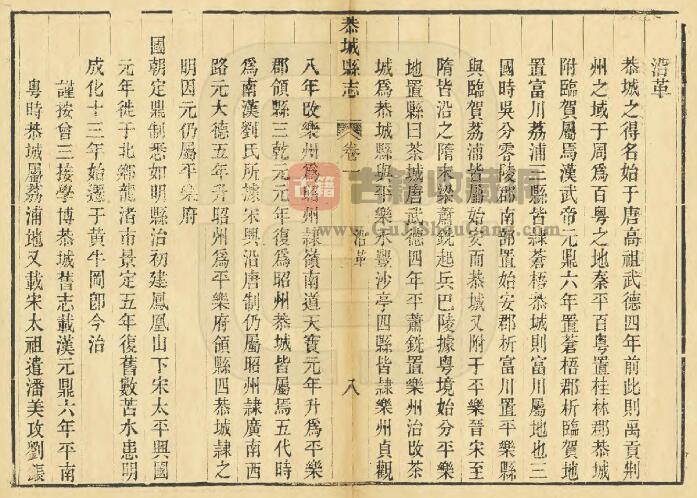 沿革
恭城之得名始于唐高祖武德四年前此則禹貢荆
州之域于周爲百粤之地秦平百粤置桂林郡恭城
附臨賀屬焉漢武帝元鼎六年置蒼梧郡析臨賀地
置富川荔浦三縣皆隸蒼梧恭城則富川屬地也三
國時吳分零陵郡南部置始安郡析富川置平樂縣
與臨賀荔浦皆屬始安而恭城又附于平樂晉宋至
隋皆沿之隋末梁蕭銑起兵巴陵據粤境始分平樂
地置縣曰茶城唐武德四年平蕭銑置樂州治改茶
城爲恭城縣與平樂永豐沙亭四縣皆隸樂州貞觀
恭城縣志
卷一
沿革
八
八年改樂州爲昭州隸嶺南道天寶元年升爲平樂
郡領縣三乾元元年復爲昭州恭城皆屬焉五代時
爲南漢劉氏所據宋興沿唐制仍屬昭州隸廣南西
路元大德五年升昭州爲平樂府領縣四恭城隸之
明因元仍屬平樂府
國朝定鼎制悉如明縣治初建鳳凰山下宋太平興國
元年徙于北鄉龍渚市景定五年復舊數苦水患明
成化十三年始遷于黄牛岡卽今治
謹按會三接學博恭城舊志載漢元鼎六年平南
粤時恭城屬荔浦地又載宋太祖遣潘美攻劉鋹
古籍
古籍收藏网
www.GuJiShouCang.com